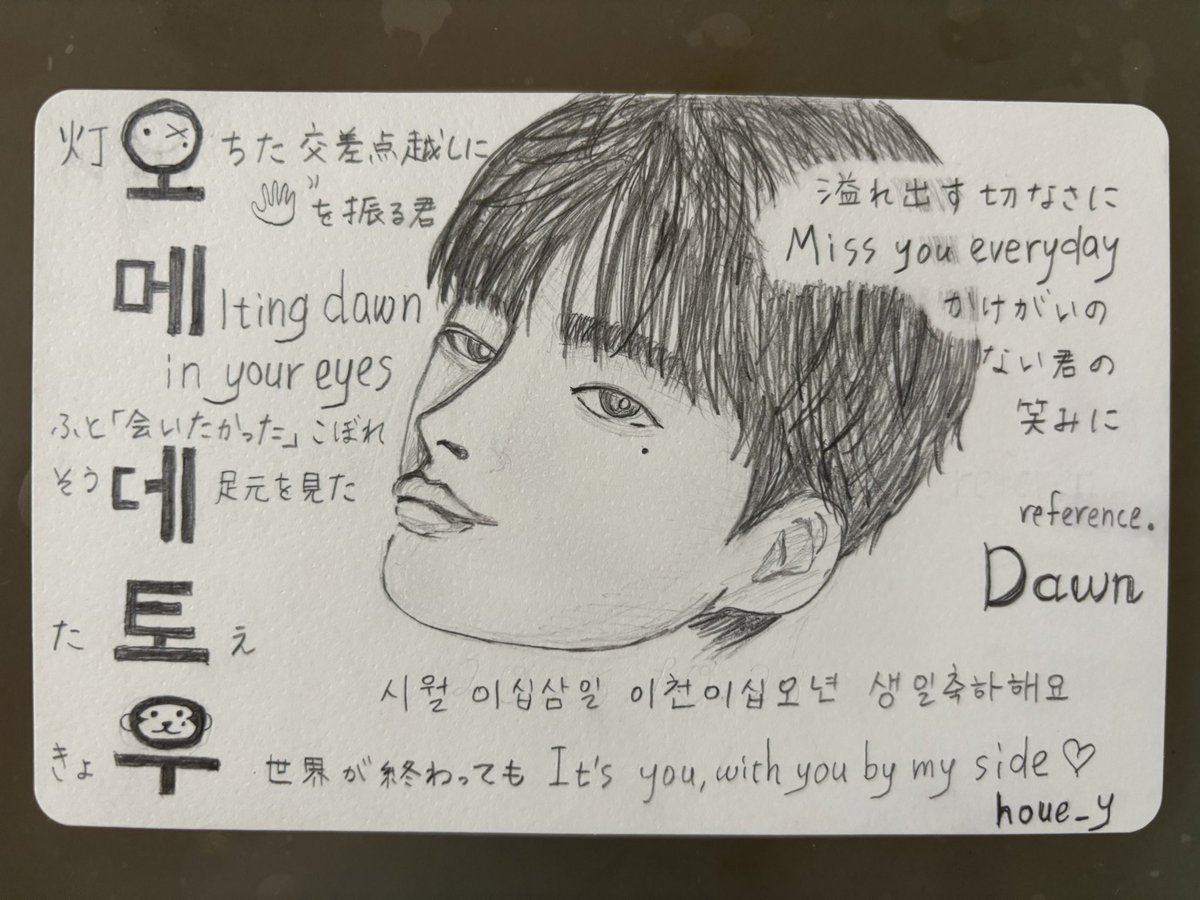 灯오ちた交差点越しに
を振る君
메lting dawn
in your eyes
ふと「会いたかった」こぼれ
そう데足元を見た
た토え
きょ우
世界が終わっても It's you, with you by my side♡
溢れ出す切なさに
Miss you everyday
かけがいの
ない君の
笑みに
reference.
Dawn
시월 이십삼일 이천이십오년 생일축하해요
houe_y